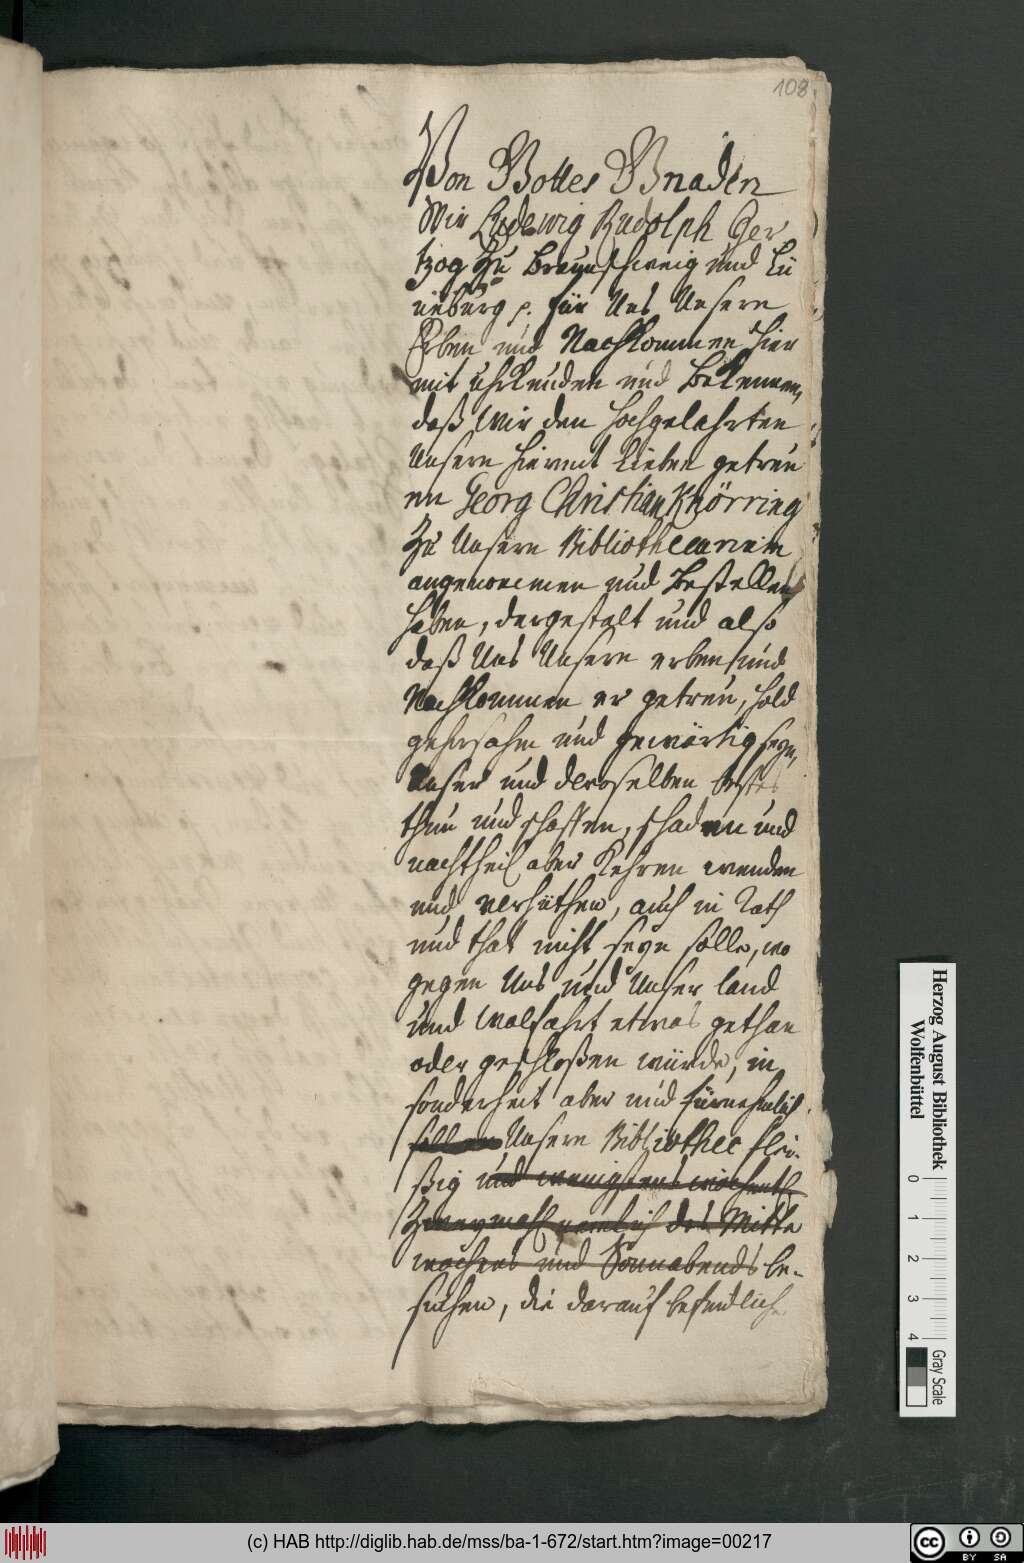 108
Von Gottes Gnaden
Wir Ludewig Rudolph Her
tzog Zu Braunschweig und Lü
neburg p. für Uns Unsere
Erben und Nachkommen hier
mit uhrkunden und Bekennen,
daß Wir den Hochgelahrten
Unsern hiermit Lieben getreu
en Georg Christian Knörring
Zu Unsern Bibliothecarium
angenommen und Bestellen
haben, dergestalt und also
daß Uns Unsern erben und
Nachkommen er getreu, hold
gehorsahm und gewärtig seyn,
Unser und deroselben bestes
thun und schaffen, schaden und
nachtheil aber Kehren wenden
und verhüthen, auch in Rath
und that nicht seyn solle, wo
gegen Uns und Unser land
und Wolfahrt etwas gethan
oder geschloßen würde, in
sonderheit aber und fürnehmlich
soll er Unsere Bibliothec flei-
ßig und wenigstens wöchentl.
Zweymahl nemlich des Mitte
wochens und Sonnabends be-
suchen, die darauf befindliche
Herzog August Bibliothek
Wolfenbüttel
0 1 2 3 4
Gray Scale
(c) HAB http://diglib.hab.de/mss/ba-1-672/start.htm?image=00217
cc BY SA